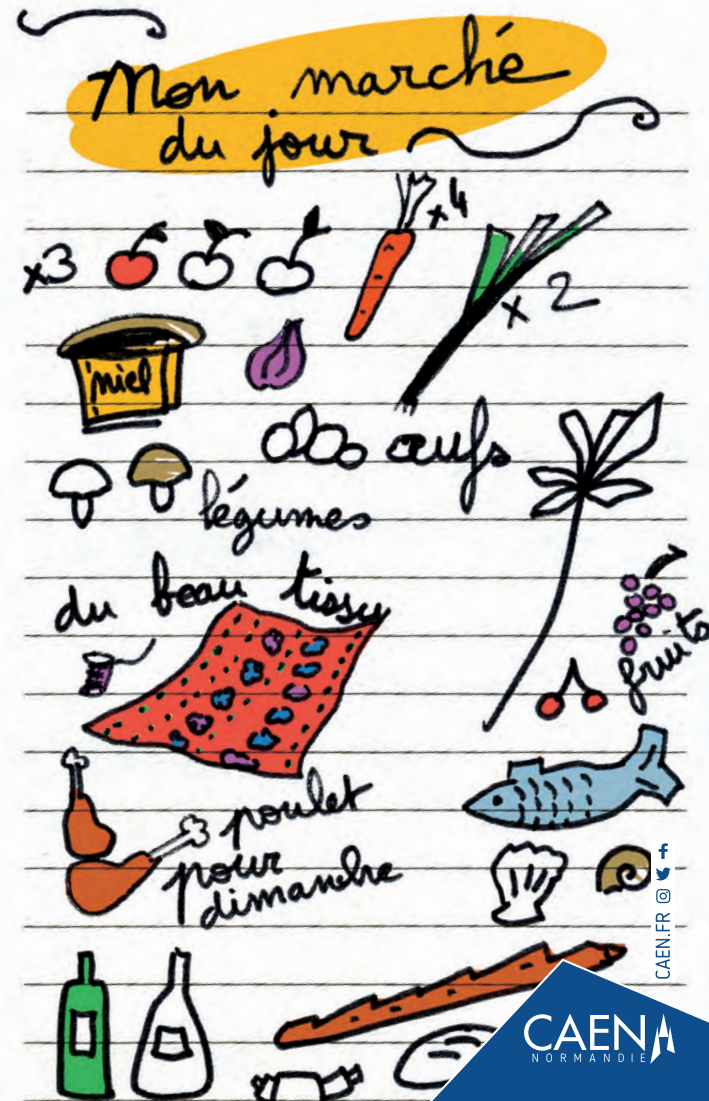 Mon marché
du jour
x3
x4
x 2
miel
œufs
légumes
du beau tissu
fruits
poulet
pour
dimanche
CAEN.FR
CAEN
NORMANDIE